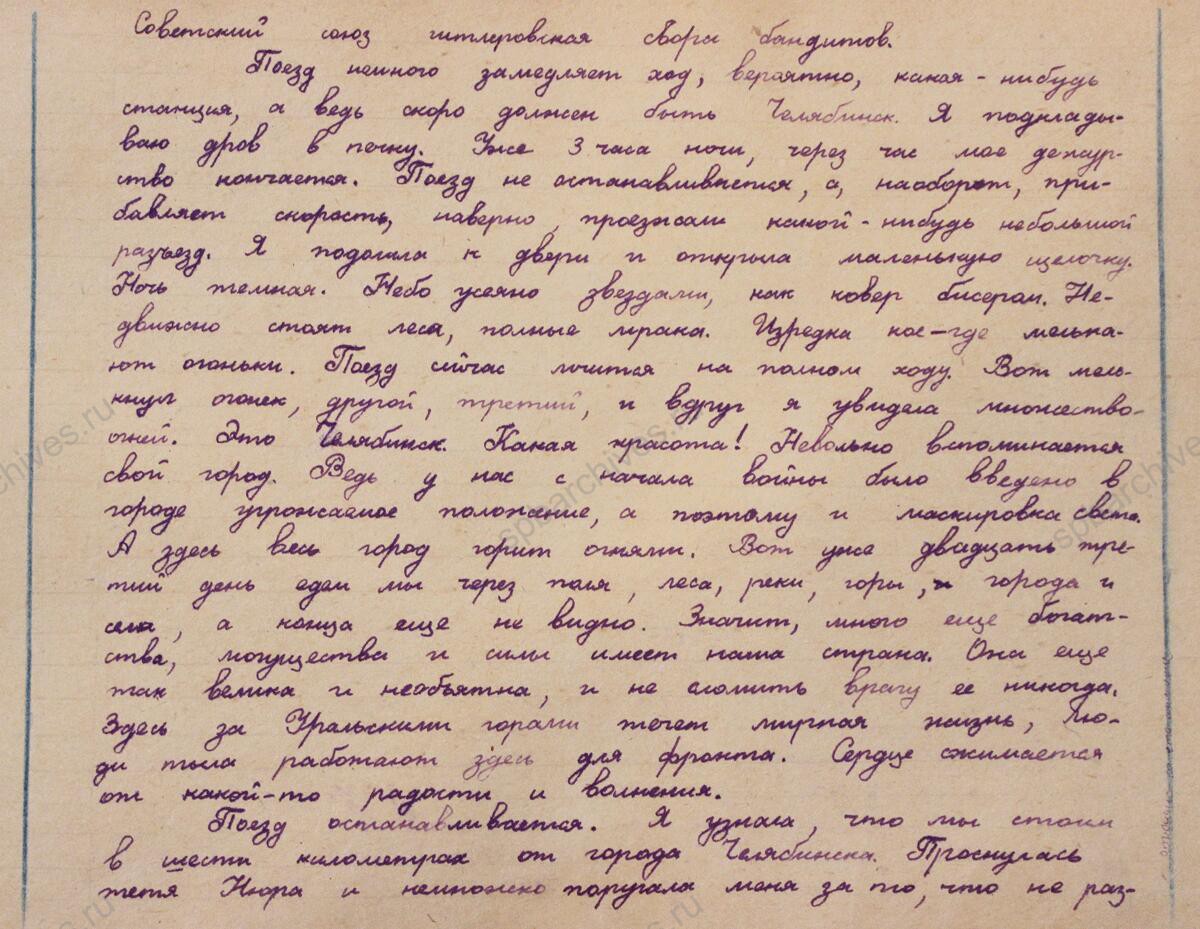 Советский союз гитлеровская свора бандитов.
Поезд немного замедляет ход, вероятно, какая-нибудь
станция, а ведь скоро должен быть Челябинск. Я подклады-
ваю дров в печку. Уже 3 часа ночи, через час мое дежур-
ство кончается. Поезд не останавливается, а, наоборот, при-
бавляет скорость, наверно, проезжали какой-нибудь небольшой
разъезд. Я подошла к двери и открыла маленькую щелочку.
Ночь темная. Небо усеяно звездами, как ковер бисером. Не-
движно стоят леса, полные мрака. Изредка кое-где мелька-
ют огоньки. Поезд сейчас мчится на полном ходу. Вот мель-
кнул огонек, другой, третий, и вдруг я увидела множество
огней. Это Челябинск. Какая красота! Невольно вспоминается
свой город. Ведь у нас с начала войны было введено в
городе угрожаемое положение, а поэтому и маскировка света.
А здесь весь город горит огнями. Вот уже двадцать тре-
тий день едем мы через поля, леса, реки, горы, города и
села, а конца еще не видно. Значит, много еще богат-
ства, могущества и силы имеет наша страна. Она еще
так велика и необъятна, и не сломить врагу ее никогда.
Здесь за Уральскими горами течет мирная жизнь, лю-
ди тыла работают здесь для фронта. Сердце сжимается
от какой-то радости и волнения.
Поезд останавливается. Я узнала, что мы стоим
в шести километрах от города Челябинска. Проснулась
тетя Нюра и немножко поругала меня за то, что не раз-
sparchives.ru